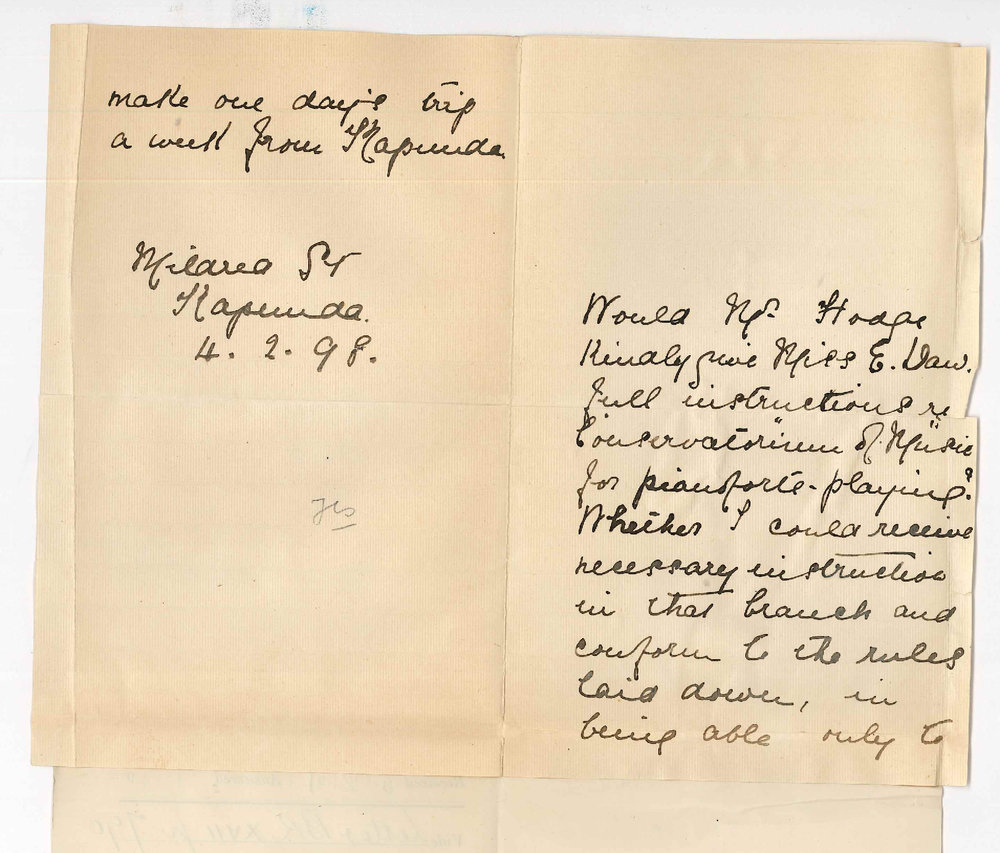 Would Mr. Hodge
Kindly give Miss E. Daw.
full instructions re
"Conservatorium of Music
for pianoforte-playing".
Whether I could receive
necessary instruction
in that branch and
conform to the rules
laid down, in
being able only to
make one day's trip
a week from Kapunda.
Mildred St
Kapunda.
4. 2. 98.